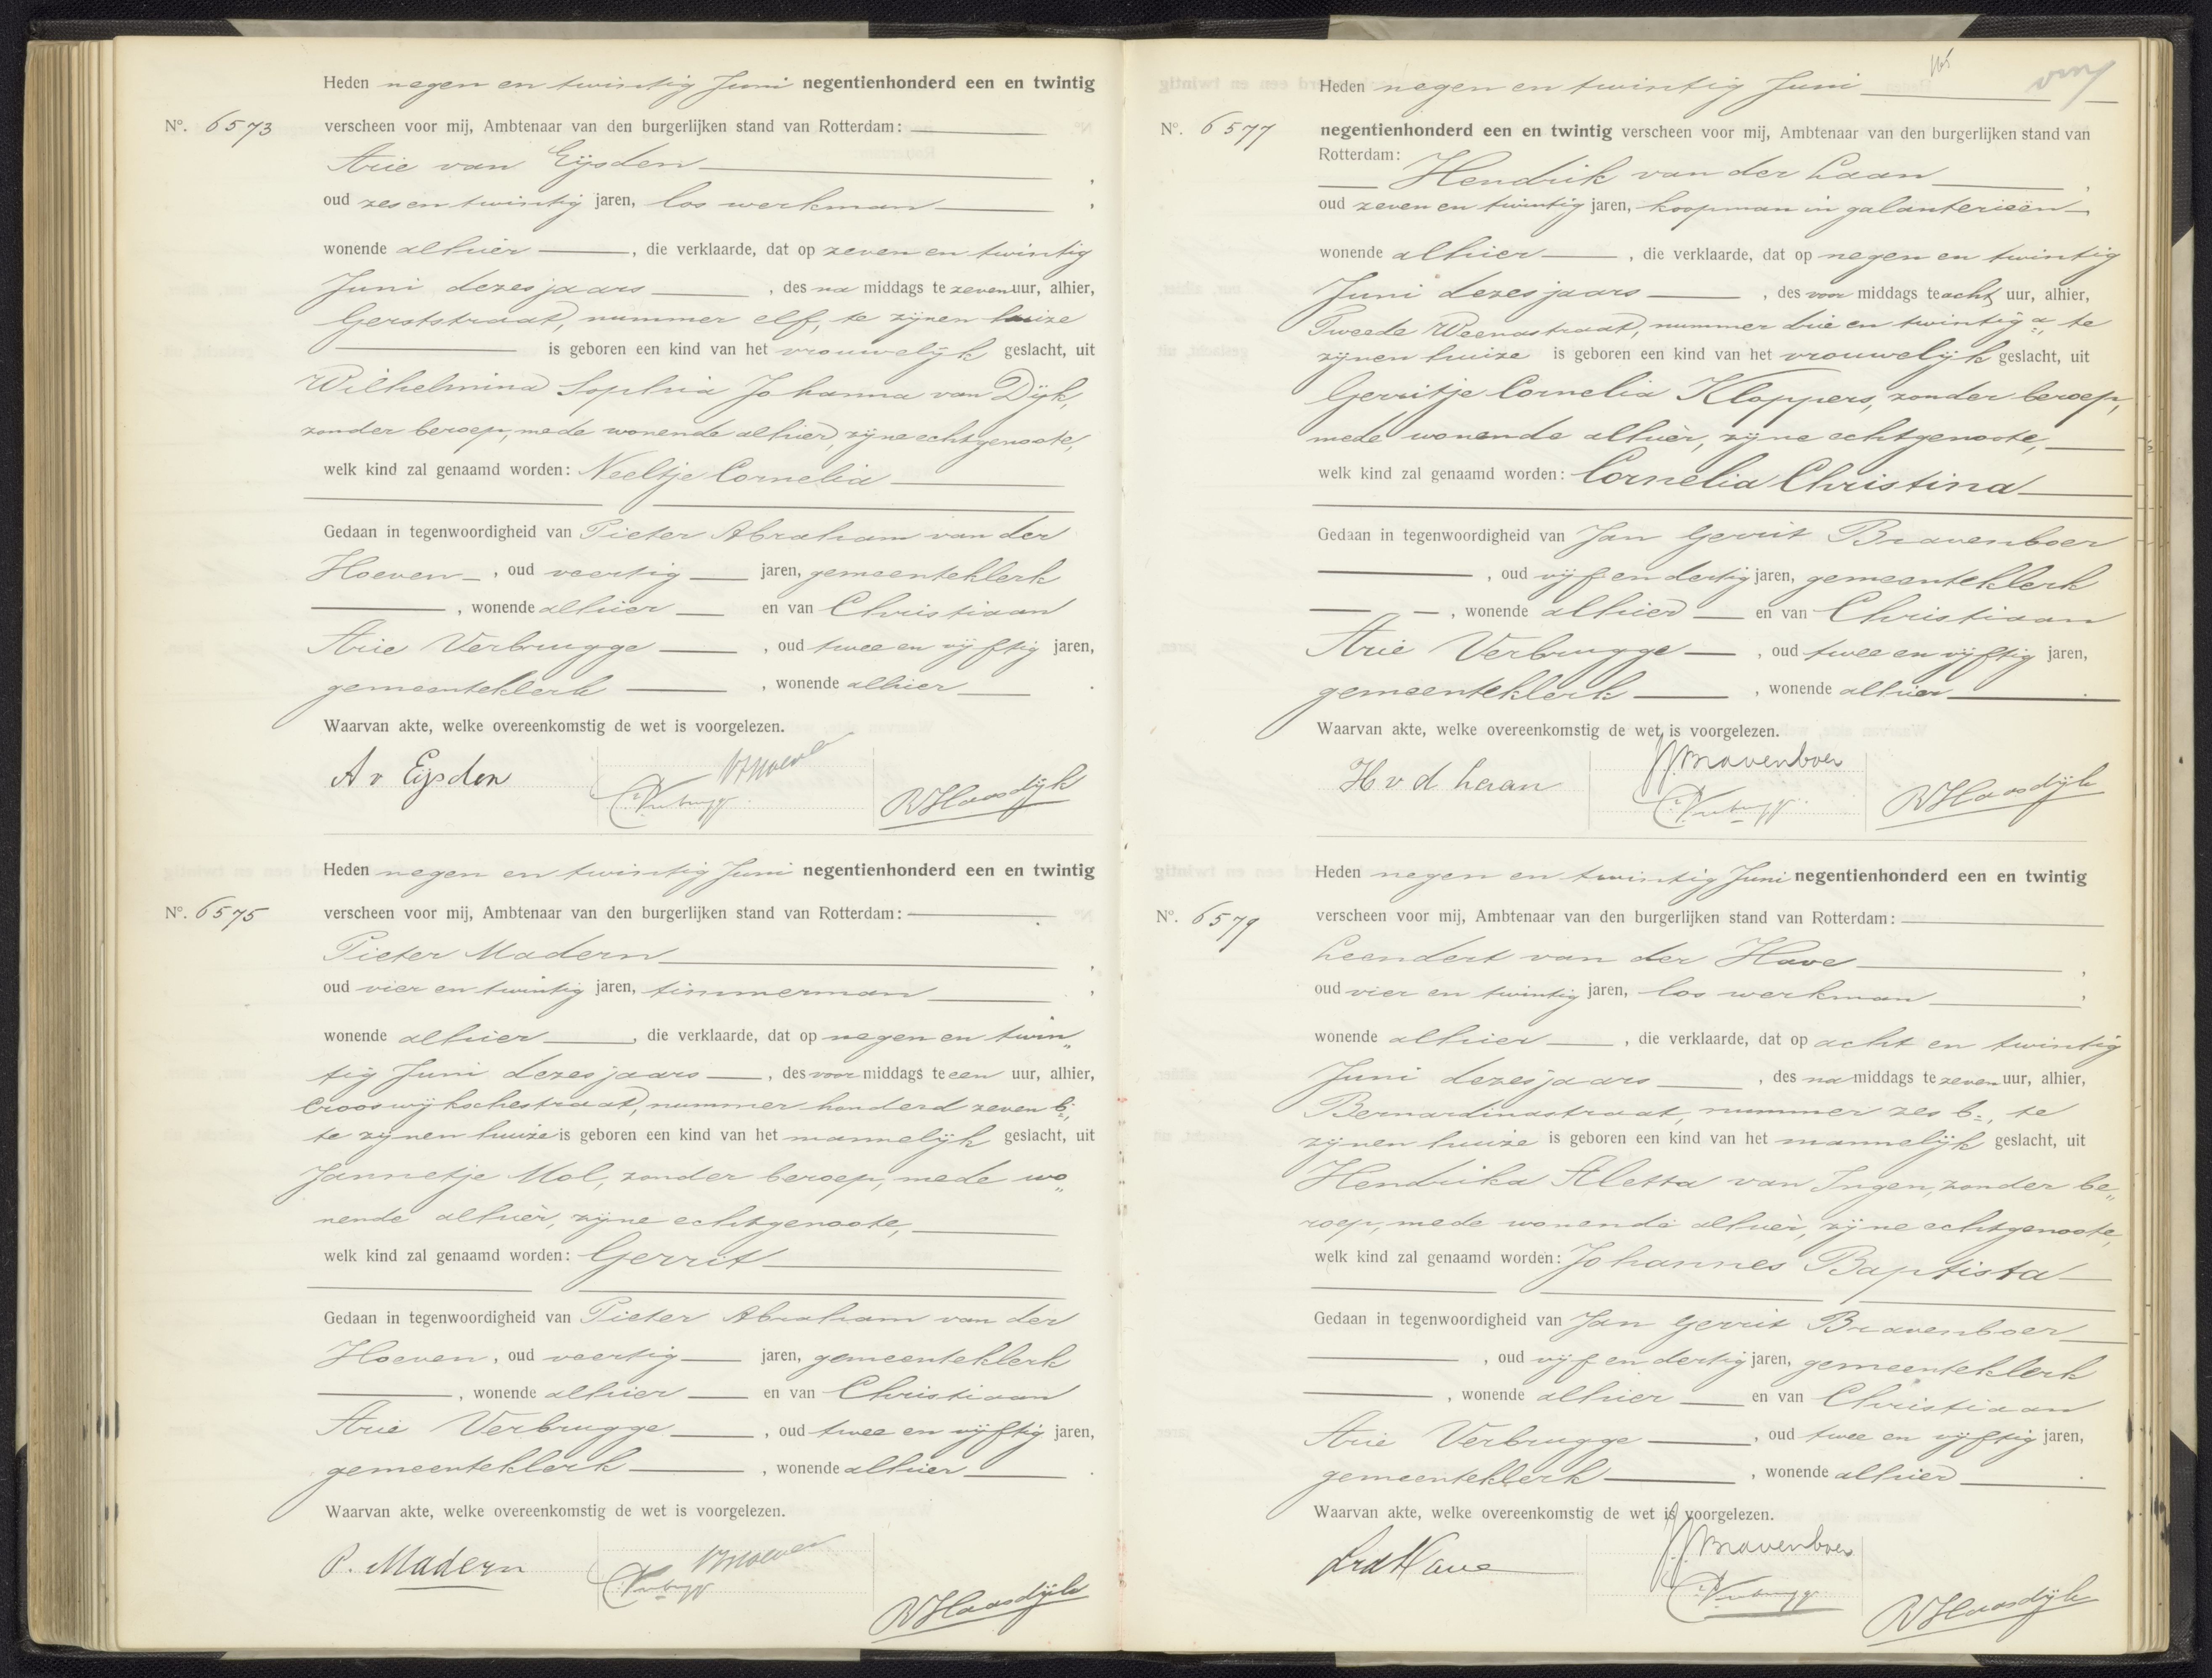 Heden negen en twintig Juni negentienhonderd een en twintig
No. 6573 verscheen voor mij, Ambtenaar van den burgerlijken stand van Rotterdam:
Arie van Eijsden
oud zes en twintig jaren, los werkman ;
wonende alhier , die verklaarde, dat op zeven en twintig
Juni dezes jaars , des na middags te zeven uur, alhier,
Gerststraat, nummer elf, te zijnen huize
is geboren een kind van het vrouwelijk geslacht, uit
Wilhelmina Sophia Johanna van Dijk,
zonder beroep, mede wonende alhier, zijne echtgenoote,
welk kind zal genaamd worden: Neeltje Cornelia
Gedaan in tegenwoordigheid van Pieter Abraham van der
Hoeven , oud veertig jaren, gemeenteklerk
, wonende alhier en van Christiaan
Arie Verbrugge , oud twee en vijftig jaren,
gemeenteklerk , wonende alhier .
Waarvan akte, welke overeenkomstig de wet is voorgelezen.
A v Eijsden
C Verbrugge
RHaasdijk
Heden negen en twintig Juni negentienhonderd een en twintig
No. 6575 verscheen voor mij, Ambtenaar van den burgerlijken stand van Rotterdam:
Pieter Madern ,
oud vier en twintig jaren, timmerman ,
wonende alhier , die verklaarde, dat op negen en twin„
tig Juni dezes jaars , des voor middags te een uur, alhier,
Crooswijkschestraat, nummer honderd zeven b,
te zijnen huize is geboren een kind van het mannelijk geslacht, uit
Jannetje Mol, zonder beroep, mede wo„
nende alhier, zijne echtgenoote,
welk kind zal genaamd worden: Gerrit
Gedaan in tegenwoordigheid van Pieter Abraham van der
Hoeven, oud veertig jaren, gemeenteklerk
, wonende alhier en van Christiaan
Arie Verbrugge , oud twee en vijftig jaren,
gemeenteklerk , wonende alhier .
Waarvan akte, welke overeenkomstig de wet is voorgelezen.
P. Madern
C Verbrugge
RHaasdijk
165
Heden negen en twintig Juni
No. 6577 negentienhonderd een en twintig verscheen voor mij, Ambtenaar van den burgerlijken stand van
Rotterdam:
Hendrik van der Laan ,
oud zeven en twintig jaren, koopman in galanterieën ,
wonende alhier , die verklaarde, dat op negen en twintig
Juni dezes jaars , des voor middags te acht uur, alhier,
Tweede Weenastraat, nummer drie en twintig a te
zijnen huize is geboren een kind van het vrouwelijk geslacht, uit
Gerritje Cornelia Kloppers, zonder beroep,
mede wonende alhier, zijne echtgenoote,
welk kind zal genaamd worden: Cornelia Christina
Gedaan in tegenwoordigheid van Jan Gerrit Bravenboer
, oud vijf en dertig jaren, gemeenteklerk
, wonende alhier en van Christiaan
Arie Verbrugge , oud twee en vijftig jaren,
gemeenteklerk , wonende alhier .
Waarvan akte, welke overeenkomstig de wet is voorgelezen.
H v d Laan
JGBravenboer
C Verbrugge
RHaasdijk
Heden negen en twintig Juni negentienhonderd een en twintig
No. 6579 verscheen voor mij, Ambtenaar van den burgerlijken stand van Rotterdam:
Leendert van der Have ,
oud vier en twintig jaren, los werkman ,
wonende alhier , die verklaarde, dat op acht en twintig
Juni dezes jaars , des na middags te zeven uur, alhier,
Bernardinastraat, nummer zes b, te
zijnen huize is geboren een kind van het mannelijk geslacht, uit
Hendrika Aletta van Ingen, zonder be„
roep, mede wonende alhier, zijne echtgenoote,
welk kind zal genaamd worden: Johannes Baptista
Gedaan in tegenwoordigheid van Jan Gerrit Bravenboer
, oud vijf en dertig jaren, gemeenteklerk
, wonende alhier en van Christiaan
Arie Verbrugge , oud twee en vijftig jaren,
gemeenteklerk , wonende alhier .
Waarvan akte, welke overeenkomstig de wet is voorgelezen.
LvdHave
JGBravenboer
C Verbrugge
RHaasdijk